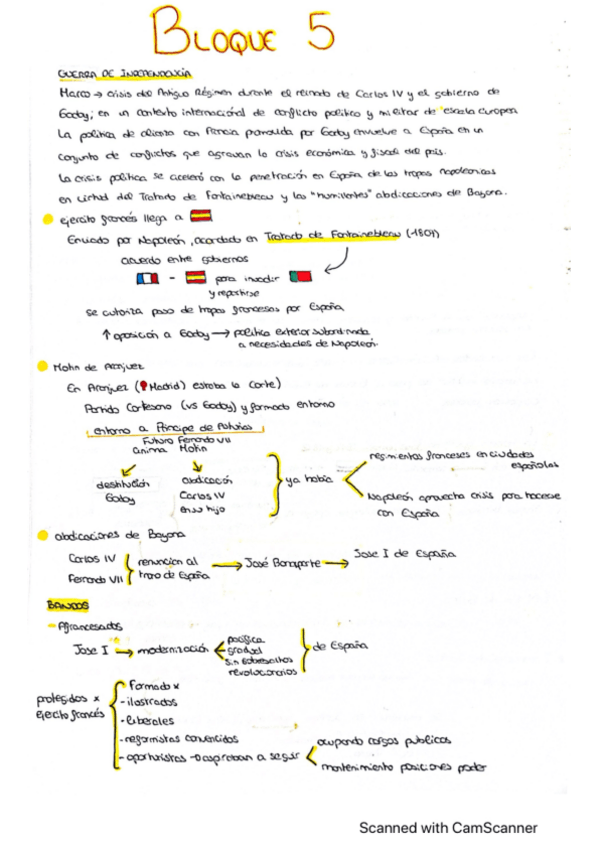 BLOQUE 5
GUERRA DE INDEPENDENCIA
Marco → crisis del Antiguo Régimen durante el reinado de Carlos IV y el gobierno de
Godoy; en un contexto internacional de conflicto político y militar de escala europea
La política de alianza con Francia promovida por Godoy envuelve a España en un
conjunto de conflictos que agravan la crisis económica y fiscal del país.
La crisis política se aceleró con la penetración en España de las tropas napoleónicas
en virtud del Tratado de Fontainebleau y las "humillantes" abdicaciones de Bayona.
ejercito francés llega a
Enviado por Napoleón, acordado en Tratado de Fontainebleau (1807)
acuerdo entre gobiernos
- para invadir
y repartirse
se autoriza paso de tropas francesas por España
↑ oposición a Godoy → política exterior subordinada
a necesidades de Napoleón
Motín de Aranjuez
En Aranjuez (Madrid) estaba la Corte)
Partido Cortesano (vs Godoy) y formado entorno
entorno a Príncipe de Asturias
Futuro Fernando VII
anima Motín
destitución
Godoy
abdicación
Carlos IV
en su hijo
ya había
regimientos franceses en ciudades
españolas
Napoleón aprovecha crisis para hacerse
con España
abdicaciones de Bayona
Carlos IV
Fernando VII
renuncian al
trono de España
→ José Bonaparte →
Jose I de España
BANDOS
- Afrancesados
Jose I → modernización
política
gradual
sin sobresaltos
revolucionarios
de España
protegidos x
ejercito francés
formado x
- ilustrados
- liberales
- reformistas convencidos
- oportunistas → aspiraban a seguir
ocupando cargos publicos
mantenimiento posiciones poder
Scanned with CamScanner